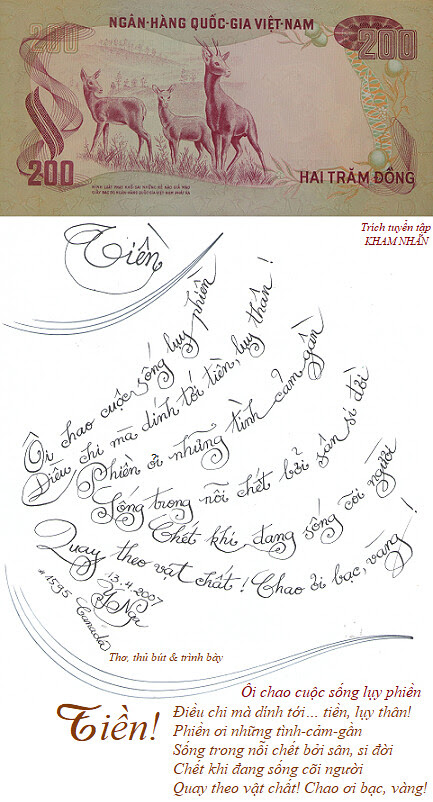 NGÂN-HÀNG QUỐC-GIA VIỆT-NAM
200
200
200
HAI TRĂM ĐỒNG
HÌNH LUẬT PHẠT KHỔ SAI NHỮNG KẺ NÀO GIẢ MẠO
GIẤY BẠC DO NGÂN HÀNG QUỐC GIA VIỆT NAM PHÁT RA
Trích tuyển tập
KHAM NHẪN
Tiền
Ôi chao cuộc sống lụy phiền
Điều chi mà dính tới tiền, lụy thân!
Phiền ơi những tình cảm gần
Sống trong nỗi chết bởi sân si đời
Chết khi đang sống cõi người
Quay theo vật chất! Chao ơi bạc, vàng!
13.4.2007
Ý Nga
# 1595 Canada
Thơ, thủ bút & trình bày
Tiền!
Ôi chao cuộc sống lụy phiền
Điều chi mà dính tới... tiền, lụy thân!
Phiền ơi những tình-cảm-gần
Sống trong nỗi chết bởi sân, si đời
Chết khi đang sống cõi người
Quay theo vật chất! Chao ơi bạc, vàng!